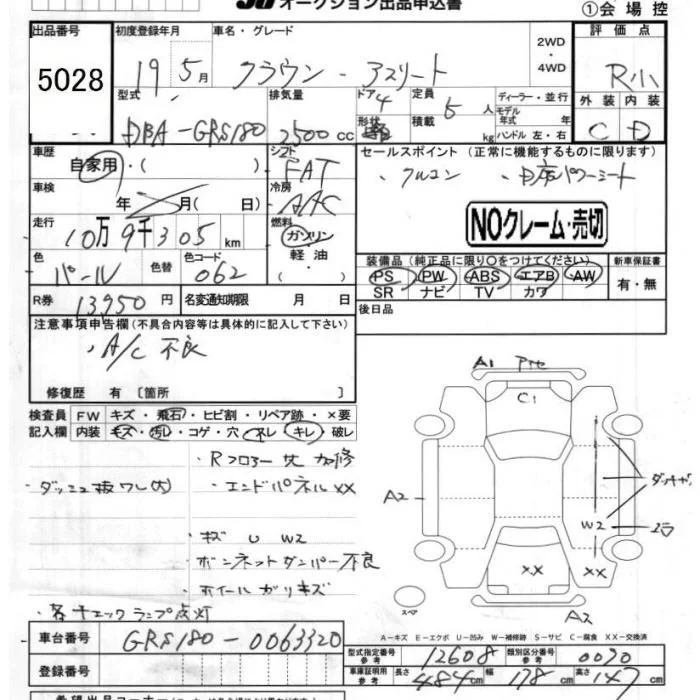 オークション出品申込書
①会場控
出品番号 初度登録年月 車名・グレード 2WD・4WD 評価点
5028 19 5月 クラウン - アスリート R小
型式 排気量 ドア 4 定員 5 人 ディーラー・並行 外装 内装
DBA-GRS180 2500 CC 形状 積載 kg モデル年式 年 ハンドル 左・右 C D
車歴 自家用・( ) シフト FAT セールスポイント(正常に機能するものに限ります)
車検 年 月( 日) 冷房 AAC ・クルコン ・
走行 10万9千305 km 燃料 ガソリン・軽油・ NOクレーム・売切
色 パール 色替 色コード 062 装備品(純正品に限り○をつけてください) 新車保証書
PS PW ABS エアB AW 有・無
SR ナビ TV カワ
R券 13,950円 名変通知期限 月 日 後日品
注意事項申告欄(不具合内容等は具体的に記入して下さい)
・A/C 不良
修復歴 有 〔箇所 〕
検査員 FW キズ・飛石・ヒビ割・リペア跡・×要
記入欄 内装 キズ・汚レ・コゲ・穴・スレ・キレ・破レ
A1 C1
・Rフロアー
・ダッシュ ・エンドパネルXX
A2
・キズ U W2 W2
・ボンネットダンパー不良
XX XX
・ホイールガリキズ
スペア
・各チェックランプ点灯
A2
A-キズ E-エクボ U-凹み W-補修跡 S-サビ C-腐食 XX-交換済
車台番号 GRS180-0063320
型式指定番号 参考 12608 類別区分番号 参考 0030
登録番号 車庫証明用 参考 長さ 484cm 幅 178cm 高さ 147cm